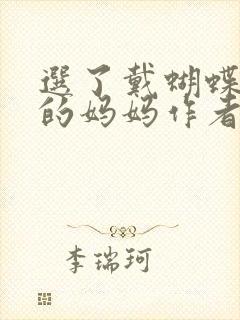 選了戴蝴蝶
的妈妈作者
李瑞珂